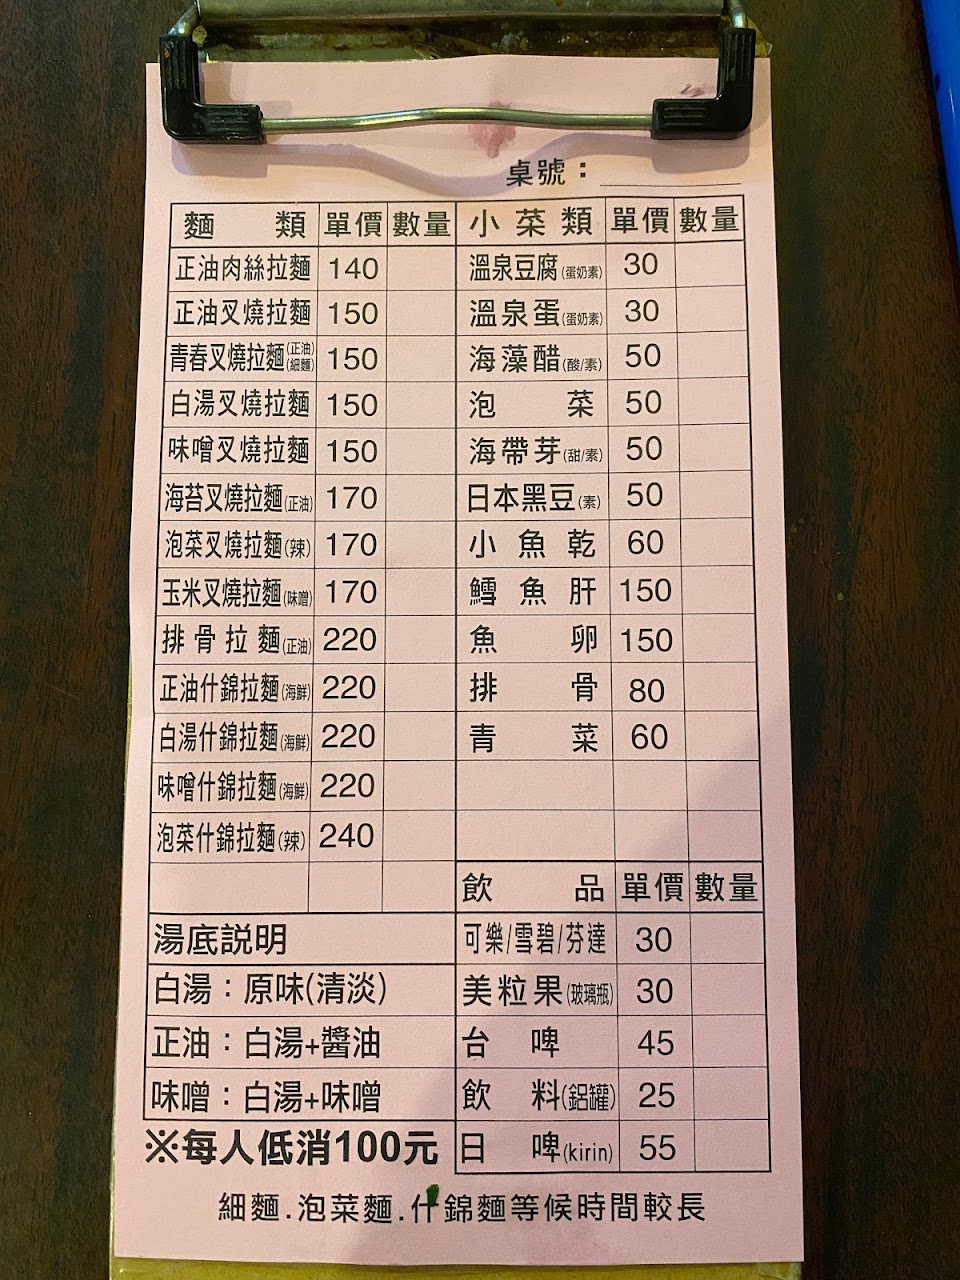 桌號：
麵類 單價 數量
正油肉絲拉麵 140
正油叉燒拉麵 150
青春叉燒拉麵(正油)(細麵) 150
白湯叉燒拉麵 150
味噌叉燒拉麵 150
海苔叉燒拉麵(正油) 170
泡菜叉燒拉麵(辣) 170
玉米叉燒拉麵(味噌) 170
排骨拉麵(正油) 220
正油什錦拉麵(海鮮) 220
白湯什錦拉麵(海鮮) 220
味噌什錦拉麵(海鮮) 220
泡菜什錦拉麵(辣) 240
湯底説明
白湯：原味(清淡)
正油：白湯+醬油
味噌：白湯+味噌
※每人低消100元
小菜類 單價 數量
溫泉豆腐(蛋奶素) 30
溫泉蛋(蛋奶素) 30
海藻醋(酸/素) 50
泡菜 50
海帶芽(甜/素) 50
日本黑豆(素) 50
小魚乾 60
鱈魚肝 150
魚卵 150
排骨 80
青菜 60
飲品 單價 數量
可樂/雪碧/芬達 30
美粒果(玻璃瓶) 30
台啤 45
飲料(鋁罐) 25
日啤(kirin) 55
細麵.泡菜麵.什錦麵等候時間較長